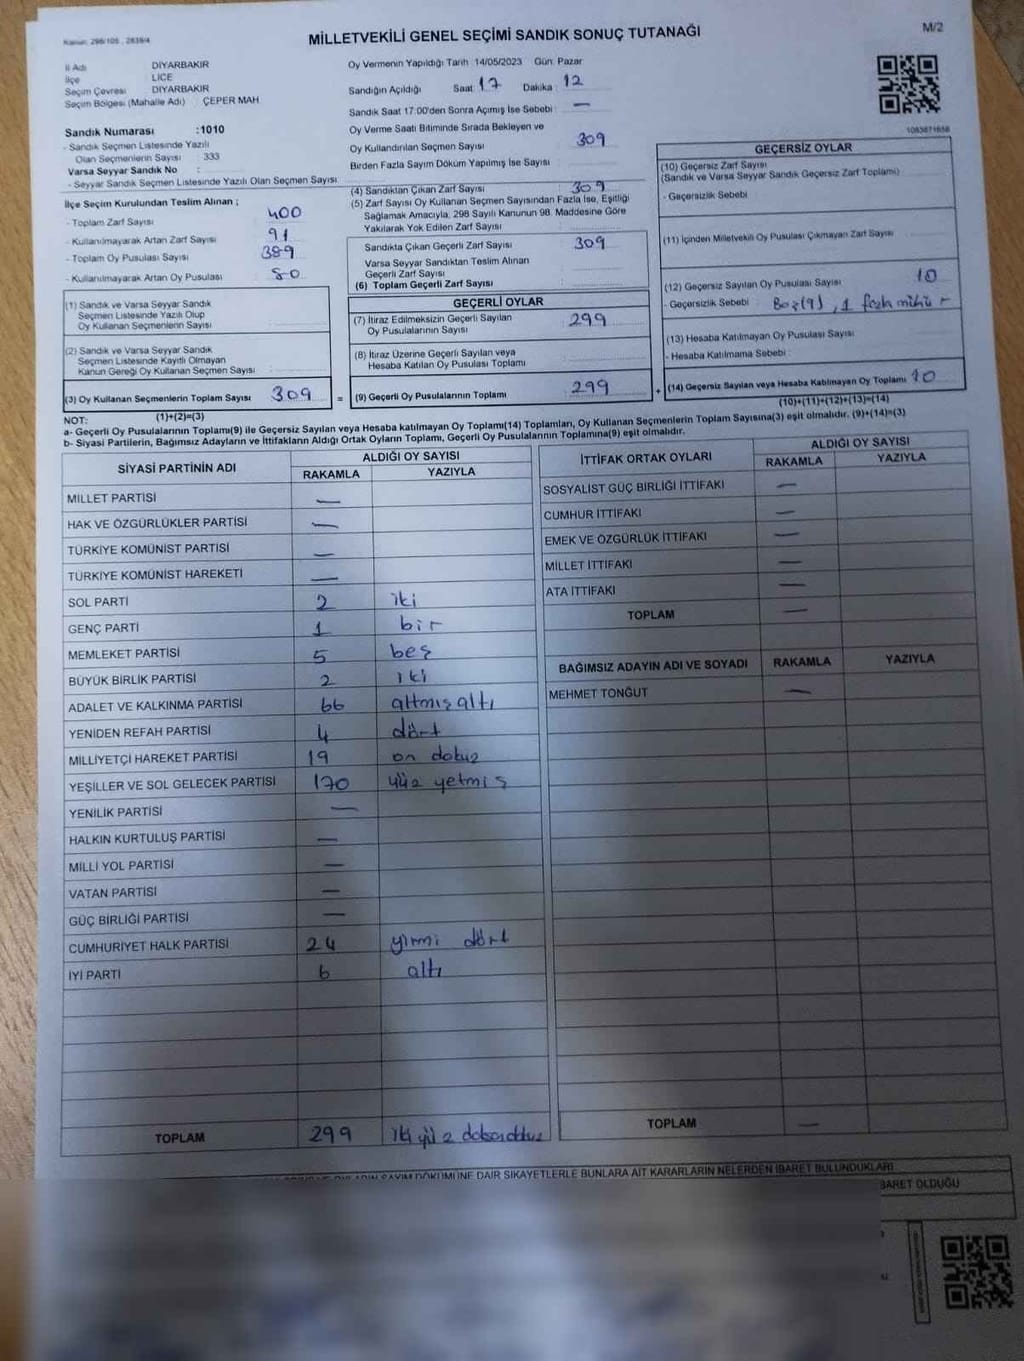 Kanun: 298/105 , 2839/4
MİLLETVEKİLİ GENEL SEÇİMİ SANDIK SONUÇ TUTANAĞI
M/2
İl Adı DİYARBAKIR
İlçe LİCE
Seçim Çevresi DİYARBAKIR
Seçim Bölgesi (Mahalle Adı) ÇEPER MAH
Sandık Numarası :1010
- Sandık Seçmen Listesinde Yazılı
Olan Seçmenlerin Sayısı : 333
Varsa Seyyar Sandık No :
- Seyyar Sandık Seçmen Listesinde Yazılı Olan Seçmen Sayısı
İlçe Seçim Kurulundan Teslim Alınan ;
- Toplam Zarf Sayısı 400
- Kullanılmayarak Artan Zarf Sayısı 91
- Toplam Oy Pusulası Sayısı 389
- Kullanılmayarak Artan Oy Pusulası 80
(1) Sandık ve Varsa Seyyar Sandık
Seçmen Listesinde Yazılı Olup
Oy Kullanan Seçmenlerin Sayısı
(2) Sandık ve Varsa Seyyar Sandık
Seçmen Listesinde Kayıtlı Olmayan
Kanun Gereği Oy Kullanan Seçmen Sayısı
(3) Oy Kullanan Seçmenlerin Toplam Sayısı 309 =
Oy Vermenin Yapıldığı Tarih 14/05/2023 Gün: Pazar
Sandığın Açıldığı Saat: 17 Dakika : 12
Sandık Saat 17:00'den Sonra Açımış İse Sebebi : —
Oy Verme Saati Bitiminde Sırada Bekleyen ve
Oy Kullandırılan Seçmen Sayısı : 309
Birden Fazla Sayım Döküm Yapılmış İse Sayısı
(4) Sandıktan Çıkan Zarf Sayısı : 309
(5) Zarf Sayısı Oy Kullanan Seçmen Sayısından Fazla İse, Eşitliği
Sağlamak Amacıyla, 298 Sayılı Kanunun 98. Maddesine Göre
Yakılarak Yok Edilen Zarf Sayısı :
Sandıkta Çıkan Geçerli Zarf Sayısı : 309
Varsa Seyyar Sandıktan Teslim Alınan
Geçerli Zarf Sayısı
(6) Toplam Geçerli Zarf Sayısı :
GEÇERLİ OYLAR
(7) İtiraz Edilmeksizin Geçerli Sayılan
Oy Pusulalarının Sayısı : 299
(8) İtiraz Üzerine Geçerli Sayılan veya
Hesaba Katılan Oy Pusulası Toplamı
(9) Geçerli Oy Pusulalarının Toplamı : 299 +
1083871658
GEÇERSİZ OYLAR
(10) Geçersiz Zarf Sayısı
(Sandık ve Varsa Seyyar Sandık Geçersiz Zarf Toplamı)
- Geçersizlik Sebebi
(11) İçinden Milletvekili Oy Pusulası Çıkmayan Zarf Sayısı
(12) Geçersiz Sayılan Oy Pusulası Sayısı 10
- Geçersizlik Sebebi : Boş(9) , 1 fazla mühür
(13) Hesaba Katılmayan Oy Pusulası Sayısı
- Hesaba Katılmama Sebebi :
(14) Geçersiz Sayılan veya Hesaba Katılmayan Oy Toplamı 10
NOT: (1)+(2)=(3) (10)+(11)+(12)+(13)=(14)
a- Geçerli Oy Pusulalarının Toplamı(9) ile Geçersiz Sayılan veya Hesaba katılmayan Oy Toplamı(14) Toplamları, Oy Kullanan Seçmenlerin Toplam Sayısına(3) eşit olmalıdır. (9)+(14)=(3)
b- Siyasi Partilerin, Bağımsız Adayların ve İttifakların Aldığı Ortak Oyların Toplamı, Geçerli Oy Pusulalarının Toplamına(9) eşit olmalıdır.
SİYASİ PARTİNİN ADI ALDIĞI OY SAYISI
RAKAMLA YAZIYLA
MİLLET PARTİSİ —
HAK VE ÖZGÜRLÜKLER PARTİSİ —
TÜRKİYE KOMÜNİST PARTİSİ —
TÜRKİYE KOMÜNİST HAREKETİ —
SOL PARTİ 2 iki
GENÇ PARTİ 1 bir
MEMLEKET PARTİSİ 5 beş
BÜYÜK BİRLİK PARTİSİ 2 iki
ADALET VE KALKINMA PARTİSİ 66 altmış altı
YENİDEN REFAH PARTİSİ 4 dört
MİLLİYETÇİ HAREKET PARTİSİ 19 on dokuz
YEŞİLLER VE SOL GELECEK PARTİSİ 170 yüz yetmiş
YENİLİK PARTİSİ —
HALKIN KURTULUŞ PARTİSİ —
MİLLİ YOL PARTİSİ —
VATAN PARTİSİ —
GÜÇ BİRLİĞİ PARTİSİ —
CUMHURİYET HALK PARTİSİ 24 yirmi dört
İYİ PARTİ 6 altı
TOPLAM 299
İTTİFAK ORTAK OYLARI ALDIĞI OY SAYISI
RAKAMLA YAZIYLA
SOSYALİST GÜÇ BİRLİĞİ İTTİFAKI —
CUMHUR İTTİFAKI —
EMEK VE ÖZGÜRLÜK İTTİFAKI —
MİLLET İTTİFAKI —
ATA İTTİFAKI —
TOPLAM —
BAĞIMSIZ ADAYIN ADI VE SOYADI RAKAMLA YAZIYLA
MEHMET TONĞUT —
TOPLAM —
SAYIM DÖKÜMÜNE DAİR ŞİKAYETLERLE BUNLARA AİT KARARLARIN NELERDEN İBARET BULUNDUKLARI
İBARET OLDUĞU